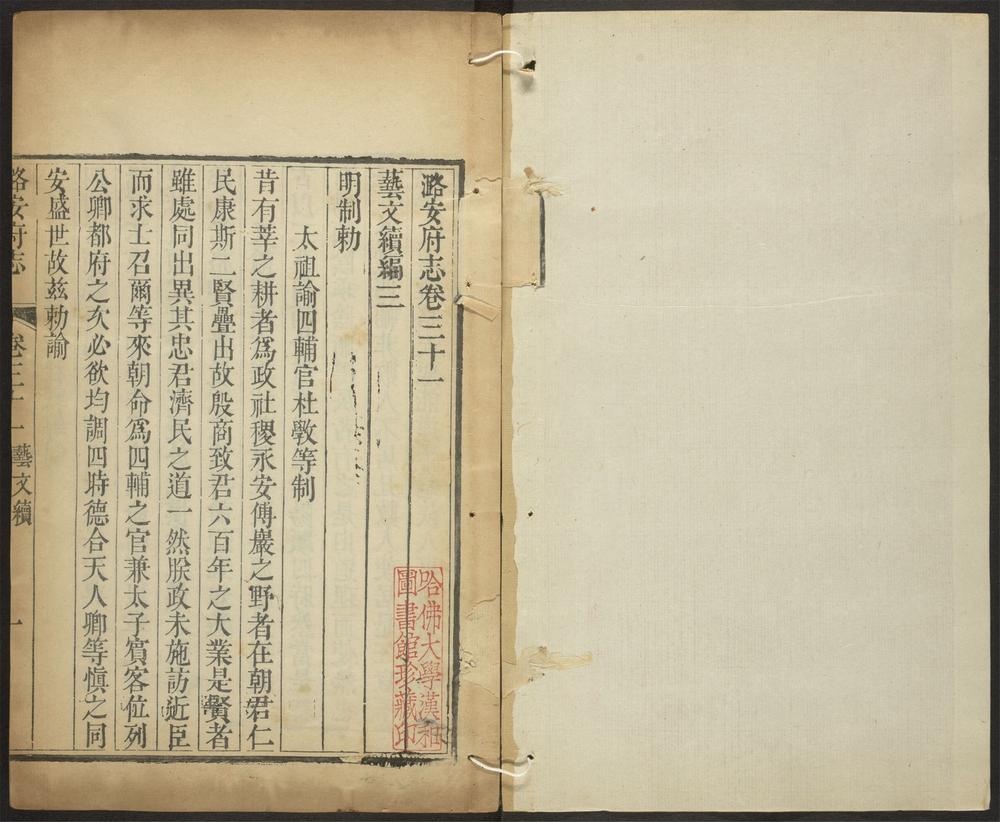 潞安府志卷三十一
藝文續編三
明制勅
太祖諭四輔官杜斆等制
昔有莘之耕者爲政社稷永安傅巖之野者在朝君仁
民康斯二賢疊出故殷商致君六百年之大業是賢者
雖處同出異其忠君濟民之道一然朕政未施訪近臣
而求士召爾等來朝命爲四輔之官兼太子賓客位列
公卿都府之次必欲均調四時德合天人卿等愼之同
安盛世故兹勅諭
潞安府志
卷三十一
藝文續
一
哈佛大學漢和
圖書館珍藏印